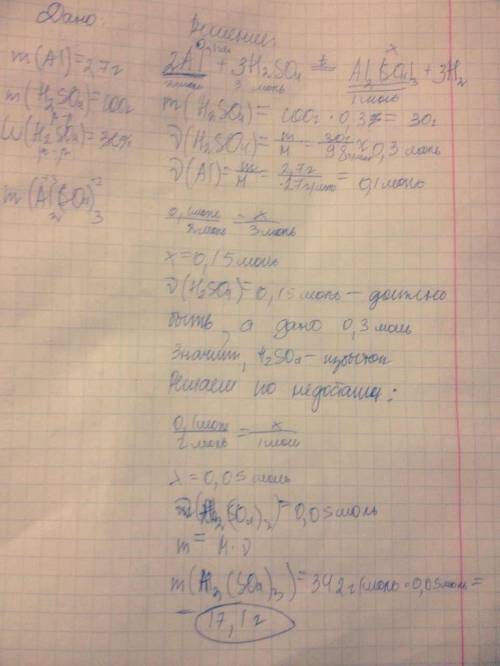 Дано
m(Al)=2,7г
m(H₂SO₄)=100г
р-р
W(H₂SO₄)=30%
р-р
m(Al₂(SO₄)₃)
Решение
0,1моль x
2Al + 3H₂SO₄ = Al₂(SO₄)₃ + 3H₂
2моль 3 моль 1моль
m(H₂SO₄) = 100г · 0,3 = 30г
ν(H₂SO₄) = m/M = 30г/98г/моль ≈ 0,3 моль
ν(Al) = m/M = 2,7г/27г/моль = 0,1 моль
0,1моль/2моль = x/3моль
x = 0,15 моль
ν(H₂SO₄) = 0,15 моль – должно
быть, а дано 0,3 моль
Значит, H₂SO₄ – избыток
Решаем по недостатку:
0,1моль/2моль = x/1моль
x = 0,05 моль
ν(Al₂(SO₄)₃) = 0,05 моль
m = M · ν
m(Al₂(SO₄)₃) = 342г/моль · 0,05моль =
= 17,1г